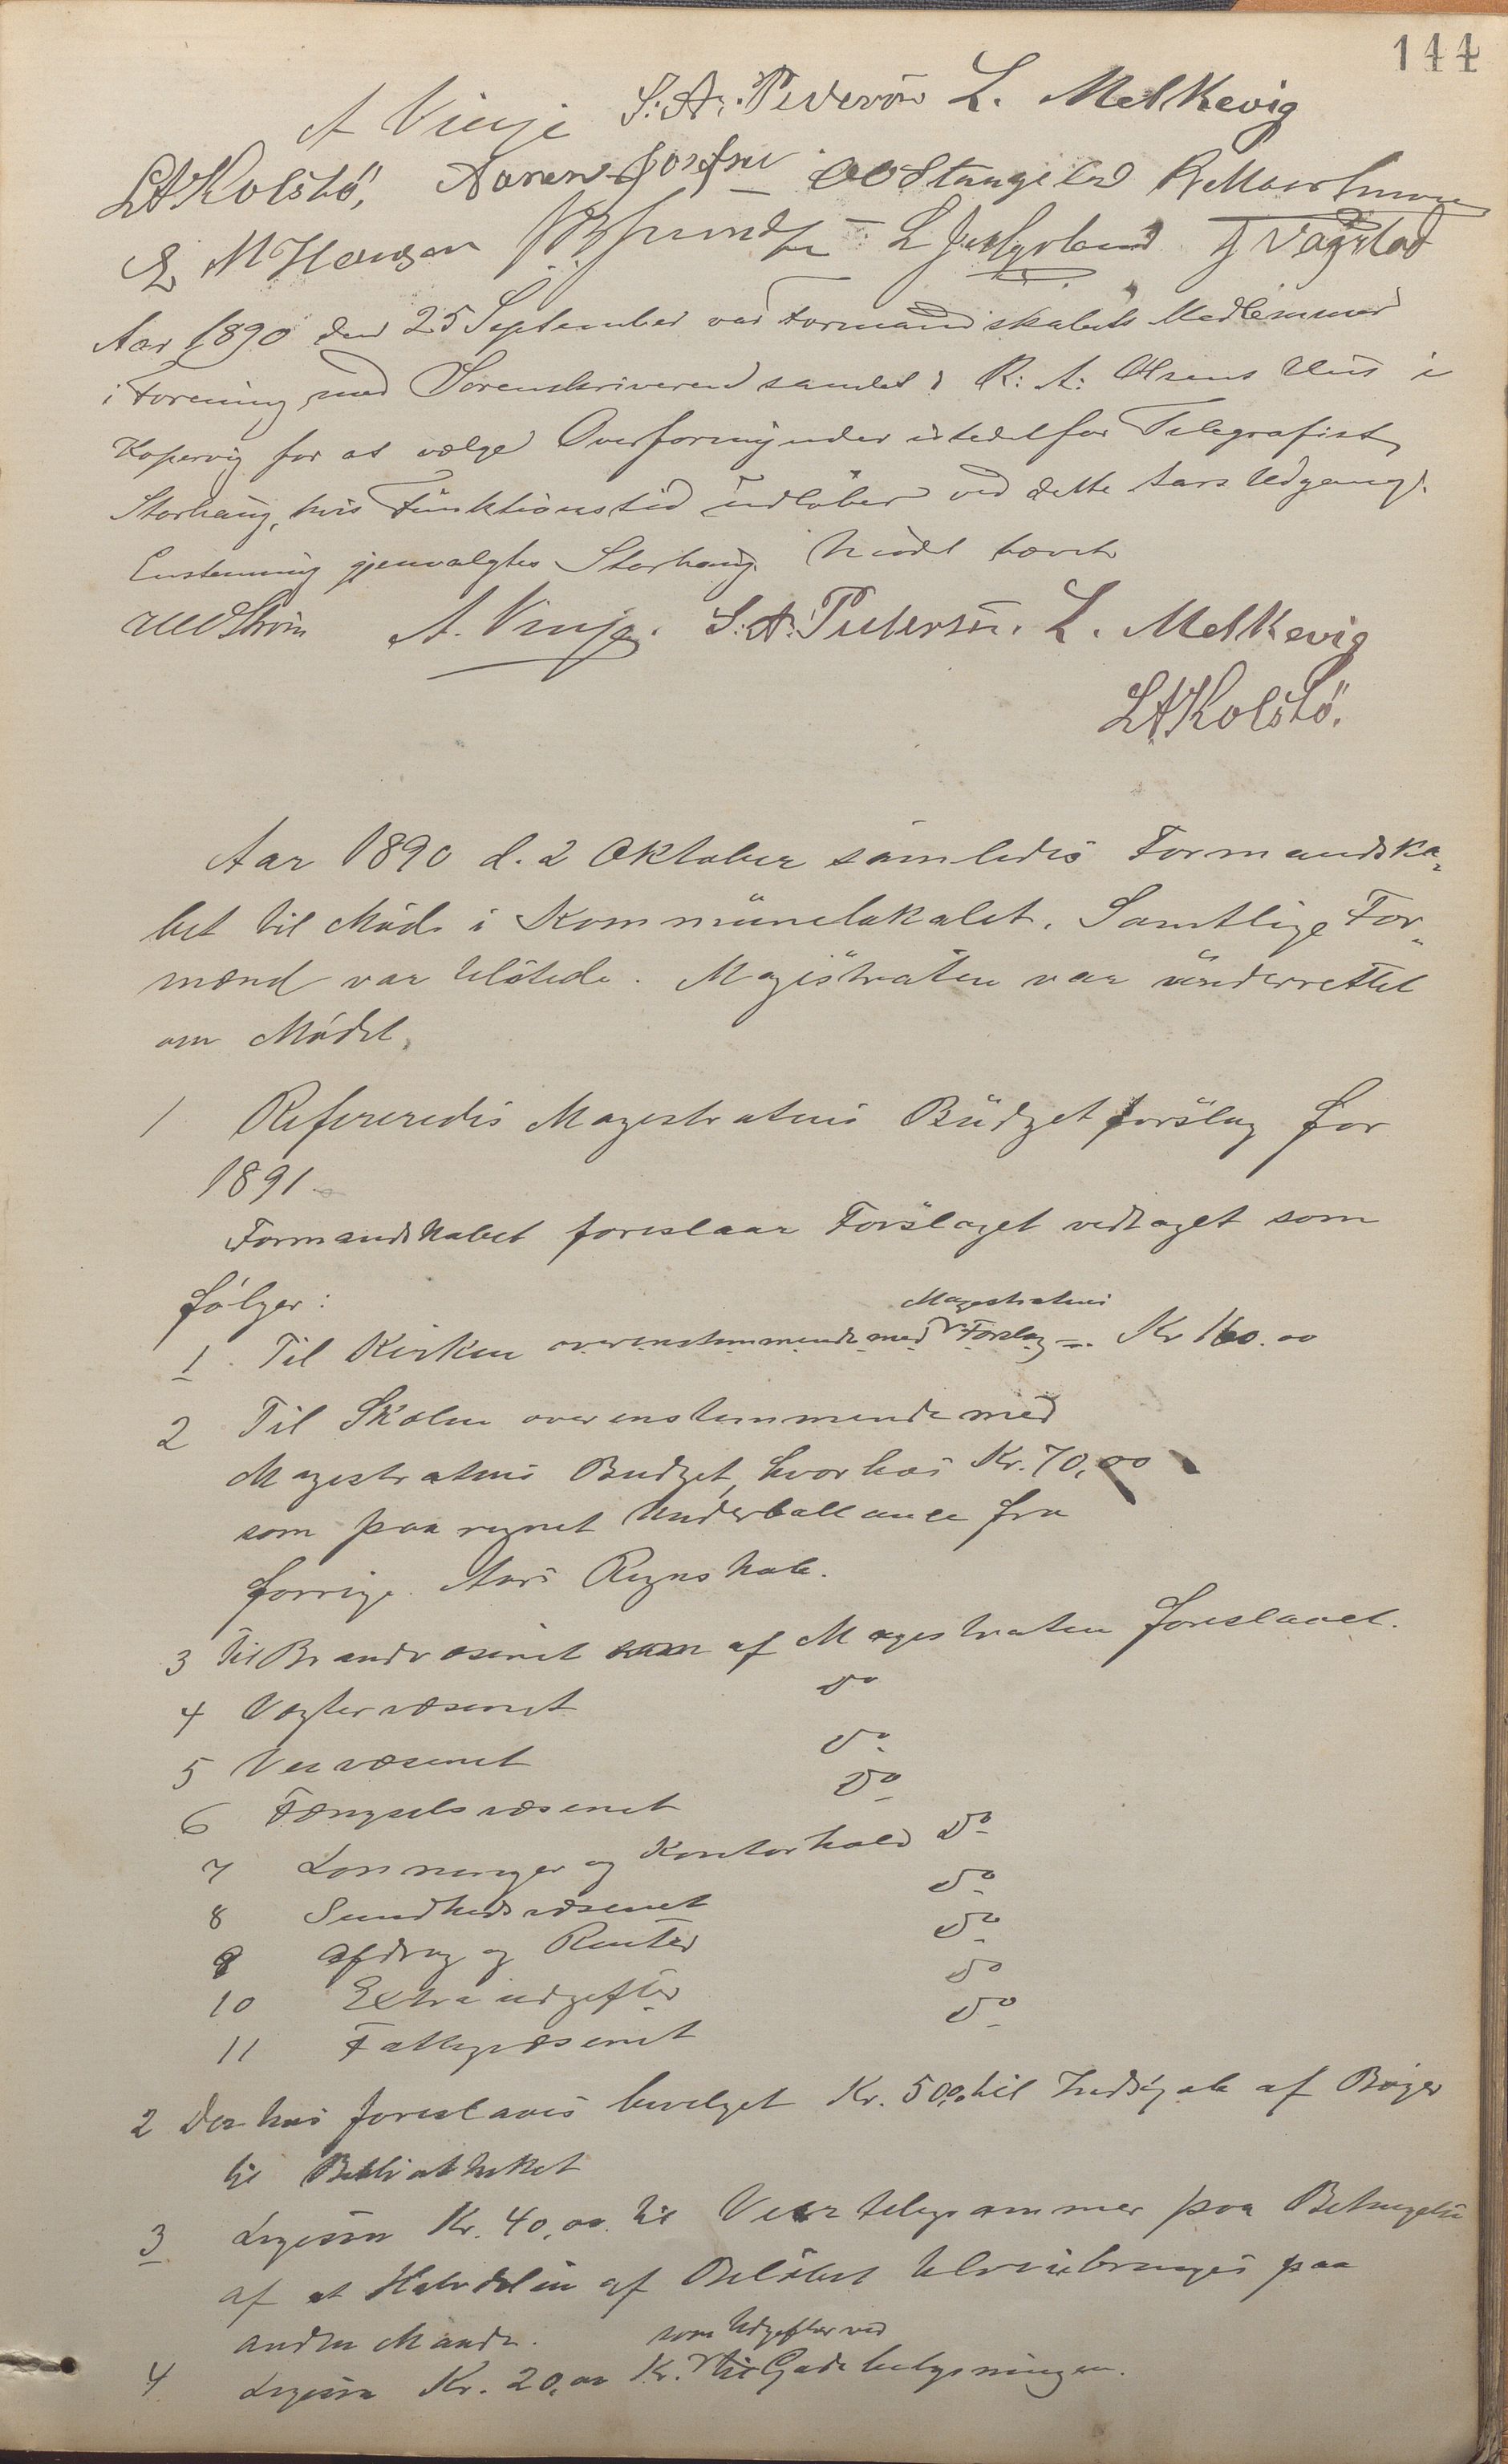 144
A Vinje S. A. Pedersen L. Melkevig
L A Kolstö, Aanen Josefsen O O Stangeland
E. M Hansen L J Vagstad
Aar 1890 den 25 September var Formandskabets Medlemmer
i Forening med Sorenskriveren samlet i R. A. Olsens Hus i
Kopervig for at vælge Overformynder istedetfor Telegrafist
Storhaug, hvis Funktionstid udløber ved dette Aars Udgang.
Enstemmig gjenvalgtes Storhaug. Mødet hævet
A. Vinje. S. A. Pedersen. L. Melkevig
L A Kolstö.
Aar 1890 d. 2 Oktober samledes Formandska-
bet til Møde i Kommunelokalet. Samtlige For-
mænd var tilstede. Magistraten var underrettet
om Mødet.
1 Refereredes Magestratens Budgetforslag for
1891
Formandskabet foreslaar Forslaget vedtaget som
følger:
1. Til Kirken overenstemmende med Magestratens Forslag Kr 160.00
2 Til Skolen overenstemmende med
Magestratens Budget, hvorhos Kr. 70,00
som paaregnet Underballance fra
forrige Aars Regnskab.
3 Til Brandvæsenet som af Magestraten foreslaaet.
4 Vægtervæsenet do
5 Veivæsenet do
6 Fængselsvæsenet do
7 Lønninger og Kontorhold do
8 Sundhedsvæsenet do
9 Afdrag og Renter do
10 Extraudgifter do
11 Fattigvæsenet do
2 Derhos foreslaaes bevilget Kr. 50,00 til Indkjøb af Bøger
til Bibliotheket
3 Ligesaa Kr. 40,00 til Veirtelegrammer paa Betingelse
af at Halvdelen af Beløbet tilveiebringes paa
anden Maade.
4 Ligesaa Kr. 20,00 Kr. som Udgifter ved til Gadebelysningen.